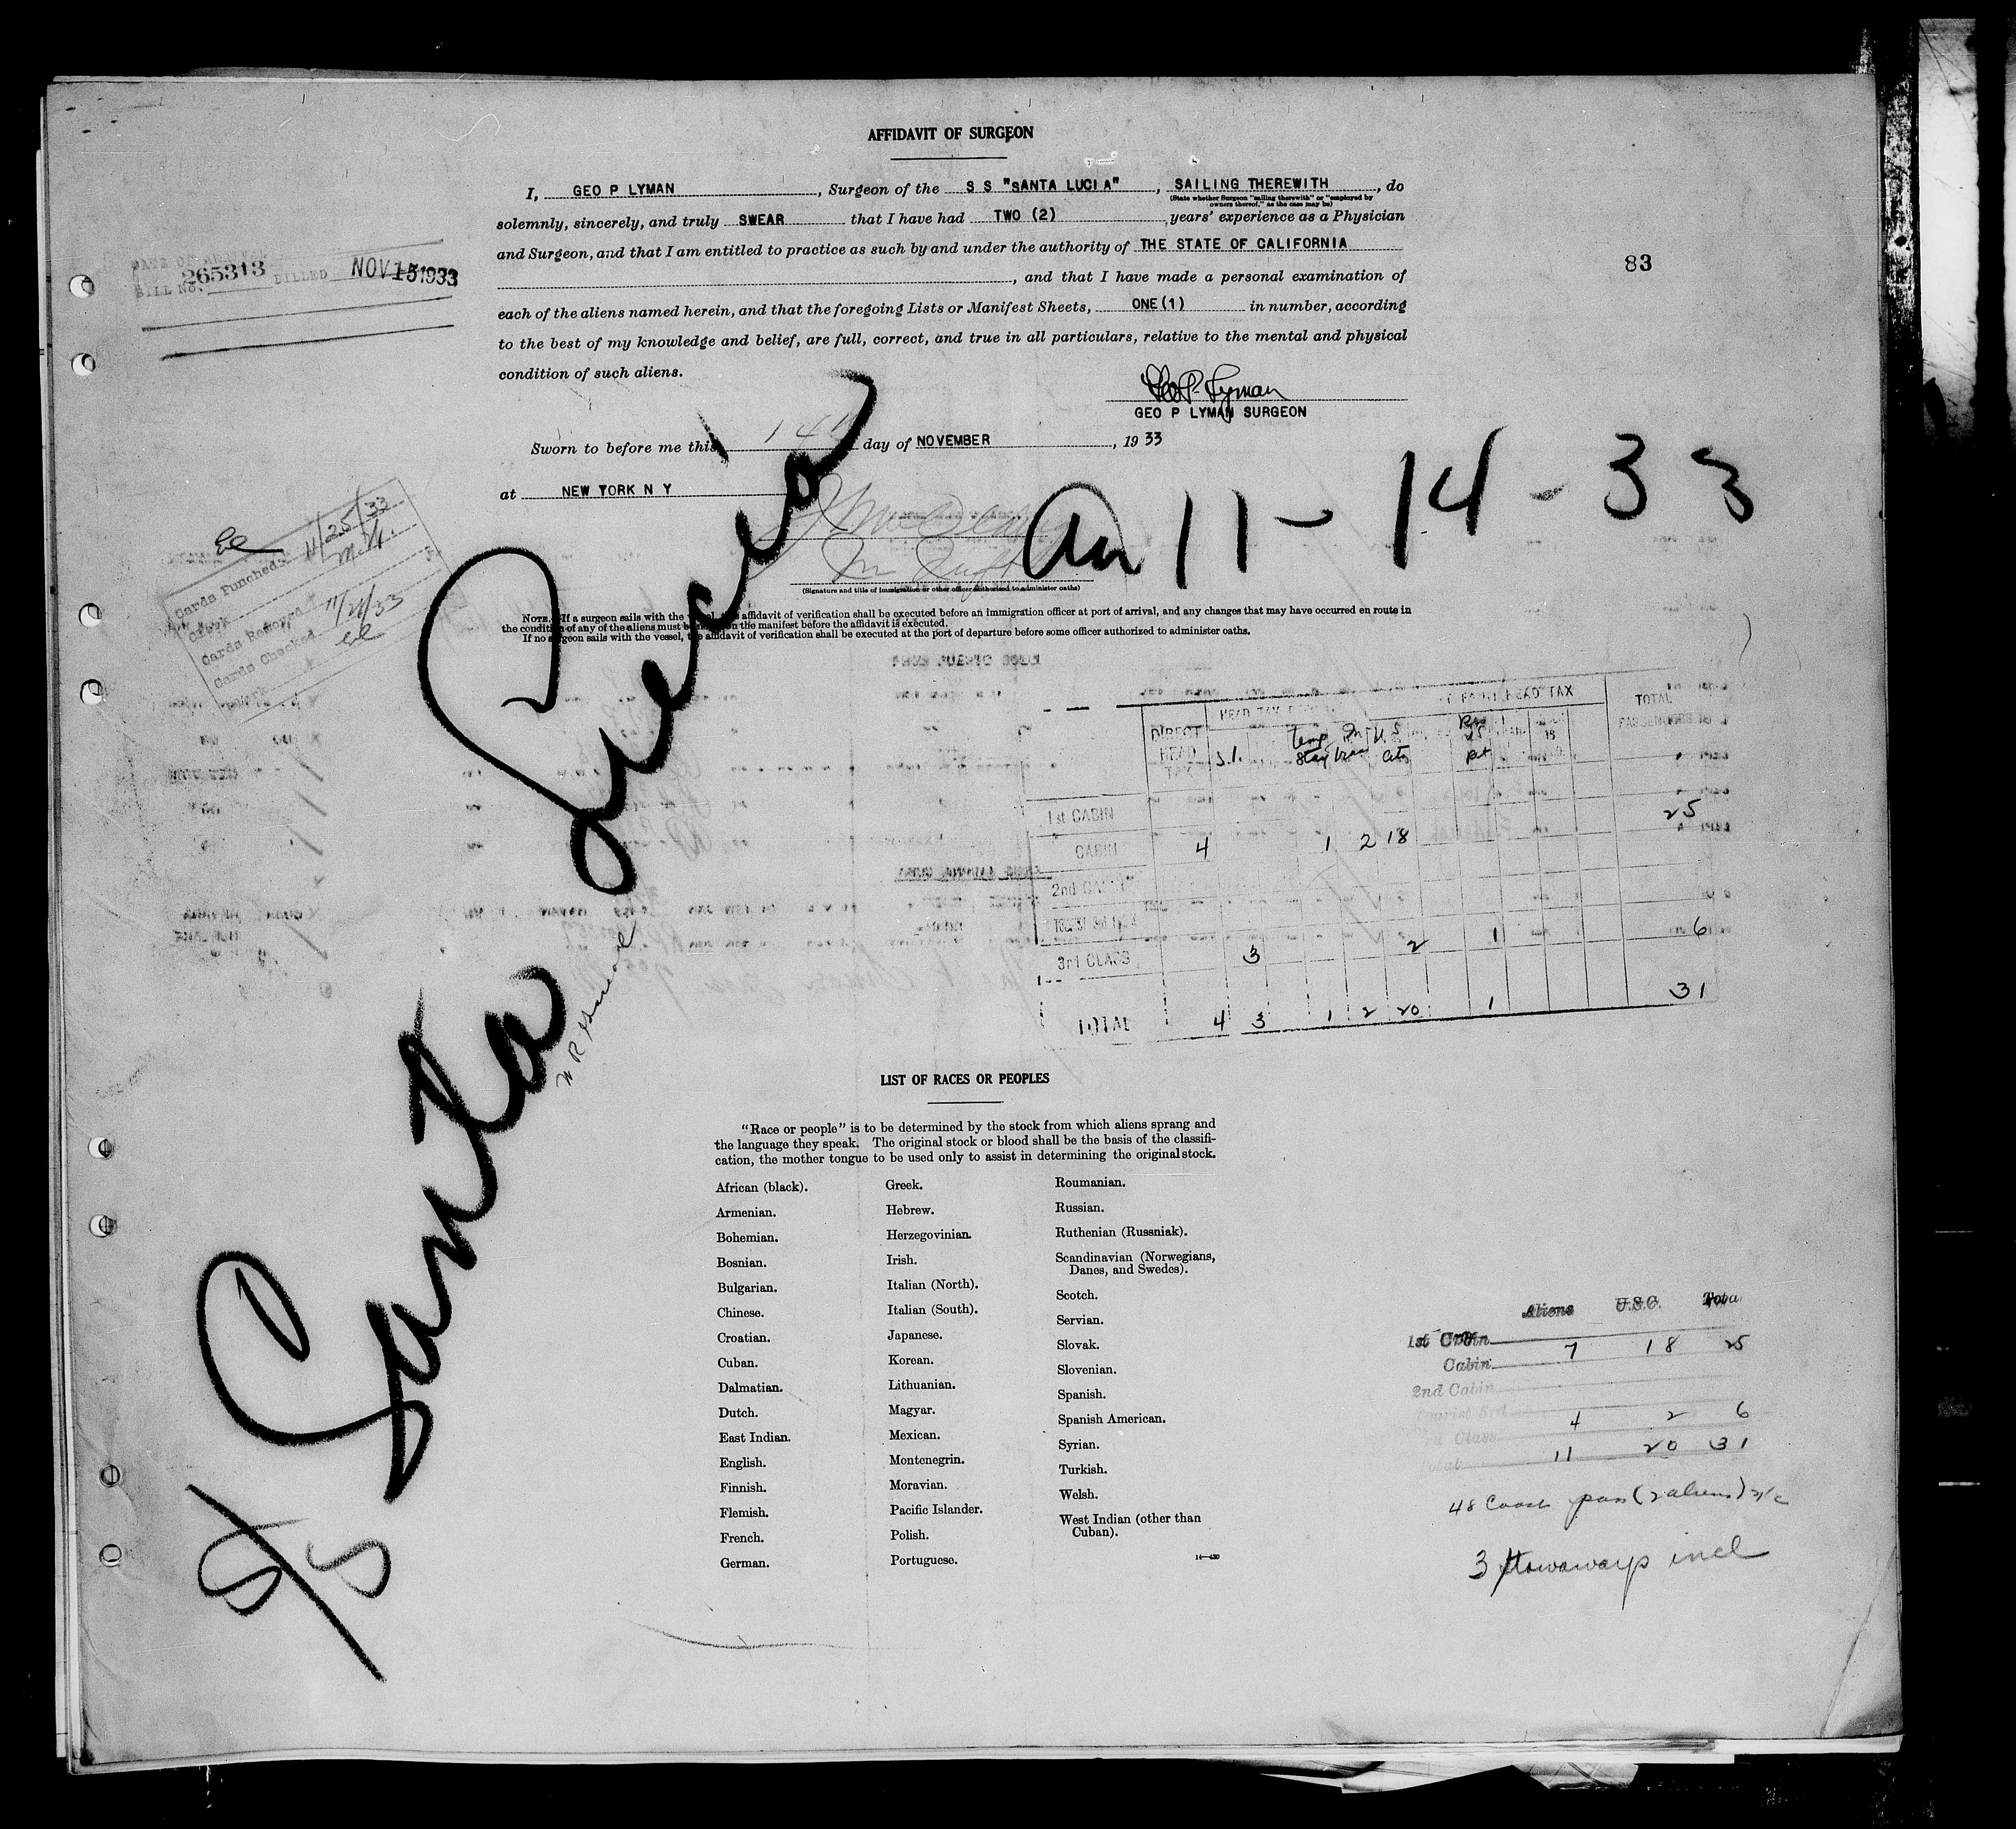 AFFIDAVIT OF SURGEON
I, GEO P LYMAN, Surgeon of the S S "SANTA LUCIA", SAILING THEREWITH, do
(State whether Surgeon "sailing therewith" or "employed by
owners thereof," as the case may be)
solemnly, sincerely, and truly SWEAR that I have had TWO (2) years' experience as a Physician
and Surgeon, and that I am entitled to practice as such by and under the authority of THE STATE OF CALIFORNIA
, and that I have made a personal examination of
each of the aliens named herein, and that the foregoing Lists or Manifest Sheets, ONE (1) in number, according
to the best of my knowledge and belief, are full, correct, and true in all particulars, relative to the mental and physical
condition of such aliens.
265313 BILLED NOV 15 1933
BILL No.
83
Geo P. Lyman
GEO P LYMAN SURGEON
Sworn to before me this 14th day of NOVEMBER, 1933
at NEW YORK N Y
(Signature and title of immigration or other officer authorized to administer oaths)
Arr 11-14-33
S/S Santa Lucia
Cards Punched 11/25/33
Clerk
Cards Record
Cards Checked
11/21/33
ee
NOTE.—If a surgeon sails with the affidavit of verification shall be executed before an immigration officer at port of arrival, and any changes that may have occurred en route in
the condition of any of the aliens must on the manifest before the affidavit is executed.
If no surgeon sails with the vessel, the affidavit of verification shall be executed at the port of departure before some officer authorized to administer oaths.
DIRECT HEAD TAX S.I. Temp Stay In Tran U S Cits HEAD TAX TOTAL PASSENGERS
1st CABIN 25
CABIN 4 1 2 18
2nd CABIN
3rd CLASS 3 2 1 6
TOTAL 4 3 1 2 20 1 31
LIST OF RACES OR PEOPLES
"Race or people" is to be determined by the stock from which aliens sprang and
the language they speak. The original stock or blood shall be the basis of the classifi-
cation, the mother tongue to be used only to assist in determining the original stock.
African (black).
Armenian.
Bohemian.
Bosnian.
Bulgarian.
Chinese.
Croatian.
Cuban.
Dalmatian.
Dutch.
East Indian.
English.
Finnish.
Flemish.
French.
German.
Greek.
Hebrew.
Herzegovinian.
Irish.
Italian (North).
Italian (South).
Japanese.
Korean.
Lithuanian.
Magyar.
Mexican.
Montenegrin.
Moravian.
Pacific Islander.
Polish.
Portuguese.
Roumanian.
Russian.
Ruthenian (Russniak).
Scandinavian (Norwegians,
Danes, and Swedes).
Scotch.
Servian.
Slovak.
Slovenian.
Spanish.
Spanish American.
Syrian.
Turkish.
Welsh.
West Indian (other than
Cuban).
14—430
Aliens U.S.C. Total
1st Cabin
Cabin 7 18 25
2nd Cabin
Tourist 3rd
Class 4 2 6
Total 11 20 31
48 Coast pass (2 aliens)
3 stowaways incl